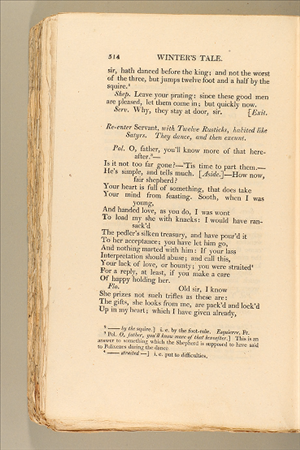 514 WINTER'S TALE.
sir, hath danced before the king; and not the worst
of the three, but jumps twelve foot and a half by the
squire.⁴
Shep. Leave your prating: since these good men
are pleased, let them come in; but quickly now.
Serv. Why, they stay at door, sir. [Exit.
Re-enter Servant, with Twelve Rusticks, habited like
Satyrs. They dance, and then exeunt.
Pol. O, father, you'll know more of that here-
after.⁵—
Is it not too far gone?—'Tis time to part them.—
He's simple, and tells much. [Aside.]—How now,
fair shepherd?
Your heart is full of something, that does take
Your mind from feasting. Sooth, when I was
young,
And handed love, as you do, I was wont
To load my she with knacks: I would have ran-
sack'd
The pedler's silken treasury, and have pour'd it
To her acceptance; you have let him go,
And nothing marted with him: If your lass
Interpretation should abuse; and call this,
Your lack of love, or bounty; you were straited⁶
For a reply, at least, if you make a care
Of happy holding her.
Flo. Old sir, I know
She prizes not such trifles as these are:
The gifts, she looks from me, are pack'd and lock'd
Up in my heart; which I have given already,
⁴ —— by the squire.] i. e. by the foot-rule. Esquierre, Fr.
⁵ Pol. O, father, you'll know more of that hereafter.] This is an
answer to something which the Shepherd is supposed to have said
to Polixenes during the dance.
⁶ —— straited—] i. e. put to difficulties.